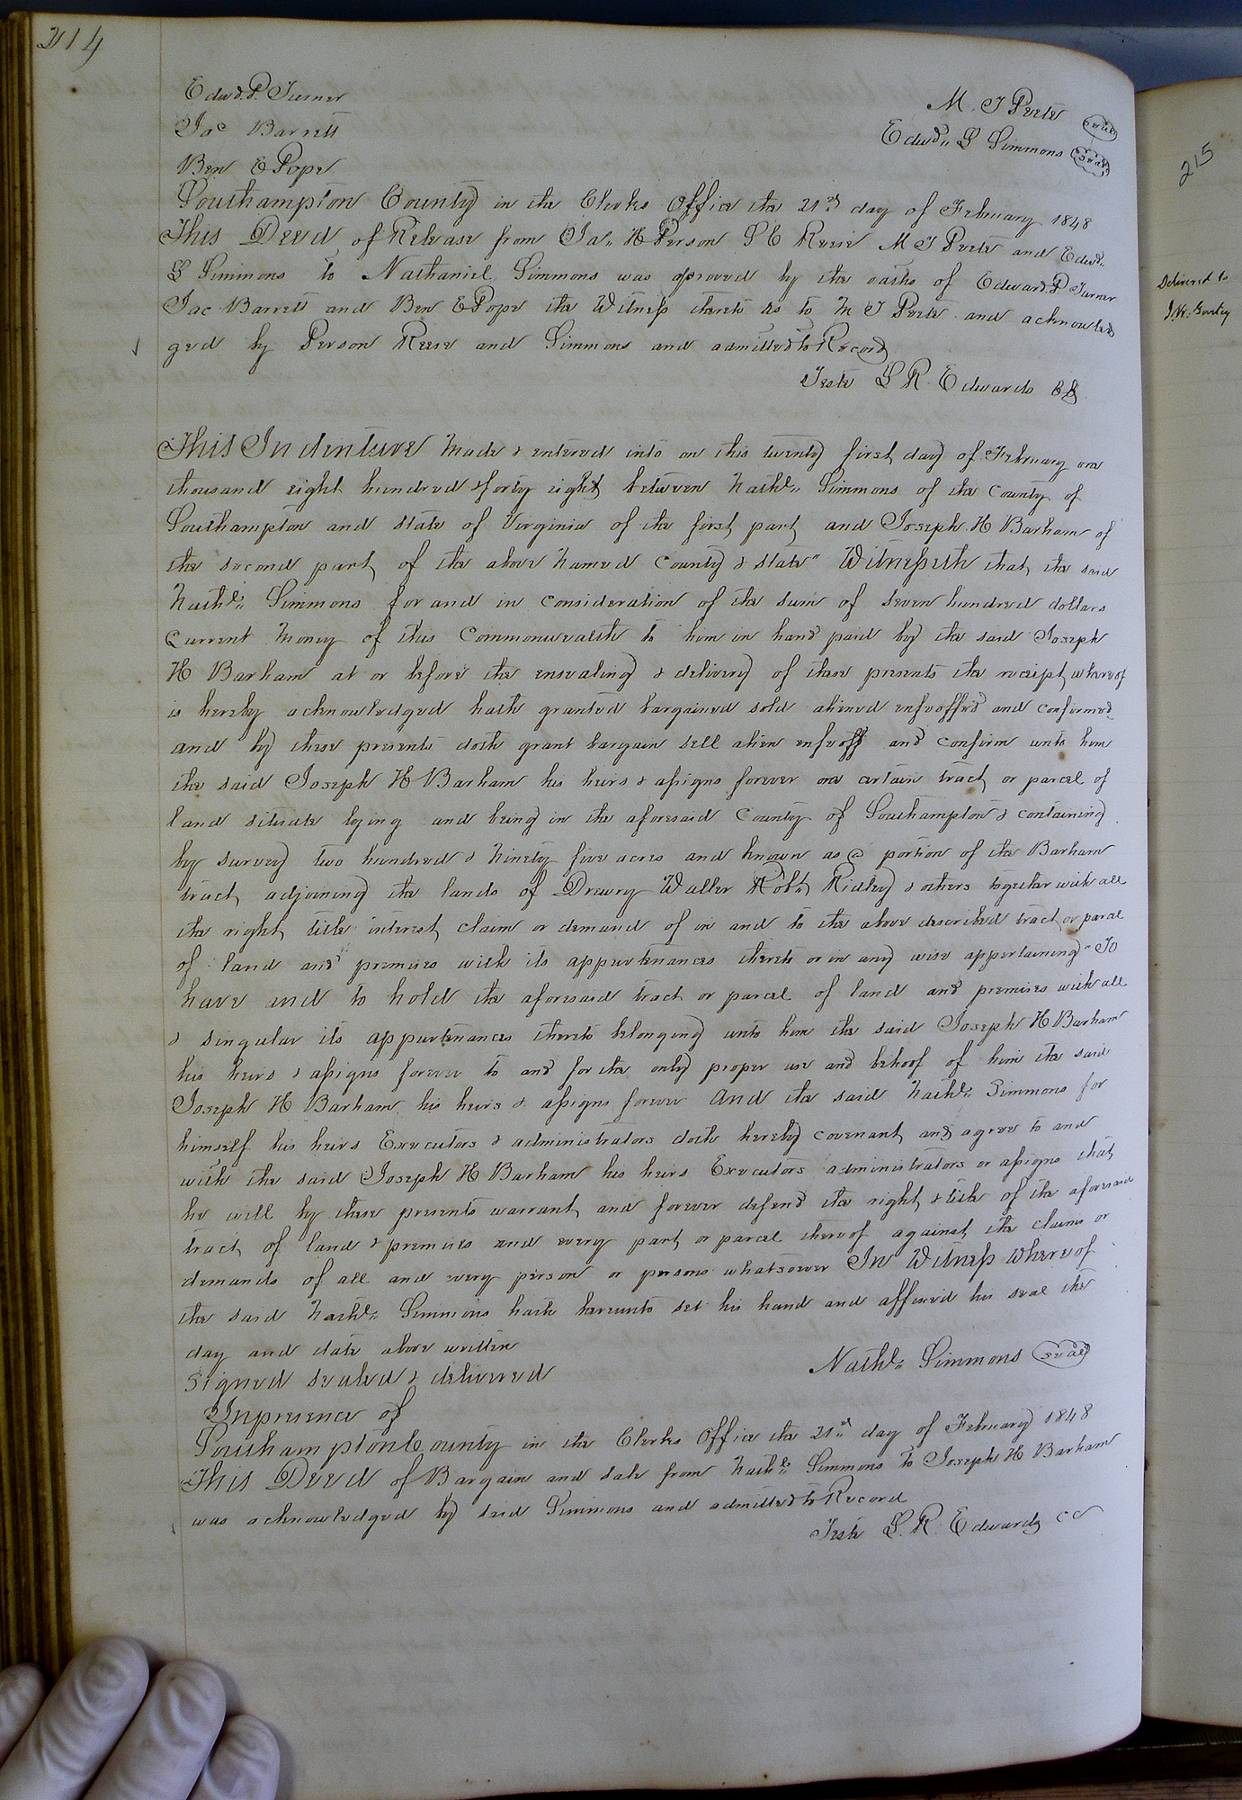 214
Edwd. P. Turner
M. T Peete seal
Jac Barrett
Edwd. G Simmons seal
Ben E Pope
Southampton County in the Clerks Office the 21st day of February 1848
This Deed of Release from Ja. H Person S E Reese M T Peete and Edwd.
G Simmons to Nathaniel Simmons was aproved by the oaths of Edward P Turner
Jac Barrett and Ben E Pope the Witness thereto as to M T Peete and acknowled
ged by Person Reese and Simmons and admitted to Record
Teste L R Edwards CC
This Indenture made & entered into on this twenty first day of February one
thousand eight hundred & forty eight between Nathl. Simmons of the County of
Southampton and State of Virginia of the first part and Joseph H Barham of
the second part of the above named County & State" Witnesseth that the said
Nathl. Simmons for and in consideration of the sum of Seven hundred dollars
Current money of this Commonwealth to him in hand paid by the said Joseph
H Barham at or before the ensealing & delivery of these presents the receipt whereof
is hereby acknowledged hath granted bargained sold aliened enfeoffed and confirmed
and by these presents doth grant bargain sell alien enfeoff and confirm unto him
the said Joseph H Barham his heirs & assigns forever one certain tract or parcel of
land situate lying and being in the aforesaid County of Southampton & containing
by survey two hundred & Ninety five acres and known as a portion of the Barham
tract adjoining the lands of Drewry Waller Robt. Ridley & others together with all
the right title interest claim or demand of in and to the above described tract or parcel
of land and premises with its appurtenances thereto or in any wise appertaining" To
have and to hold the aforesaid tract or parcel of land and premises with all
& singular its appurtenances thereto belonging unto him the said Joseph H Barham
his heirs & assigns forever to and for the only proper use and behoof of him the said
Joseph H Barham his heirs & assigns forever And the said Nathl. Simmons for
himself his heirs Executors & administrators doth hereby covenant and agree to and
with the said Joseph H Barham his heirs Executors administrators or assigns that
he will by these presents warrant and forever defend the right & title of the aforesaid
tract of land & premises and every part or parcel thereof against the claims or
demands of all and every person or persons whatsoever In Witness whereof
the said Nathl. Simmons hath hereunto set his hand and affixed his seal the
day and date above written
Nathl. Simmons seal
Signed sealed & delivered
In presence of
Southampton County in the Clerks Office the 21st day of February 1848
This Deed of Bargain and sale from Nathl. Simmons to Joseph H Barham
was acknowledged by said Simmons and admitted to Record
Teste L. R. Edwards CC
215
Delivered to